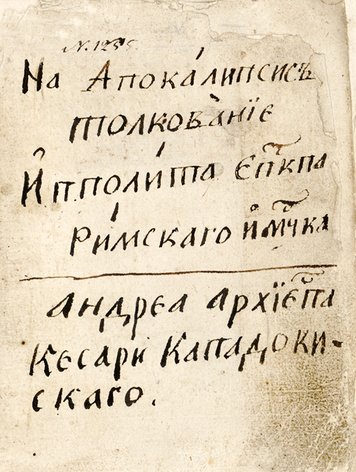 N. 1235
На Апока́липсисъ
толкова̀нїе
И҆пполи́та Еп҃кпа
Ри́мскаго и҆ мч҃ка
андреа архїеп҃па
Кесари Кападоки-
скаго.